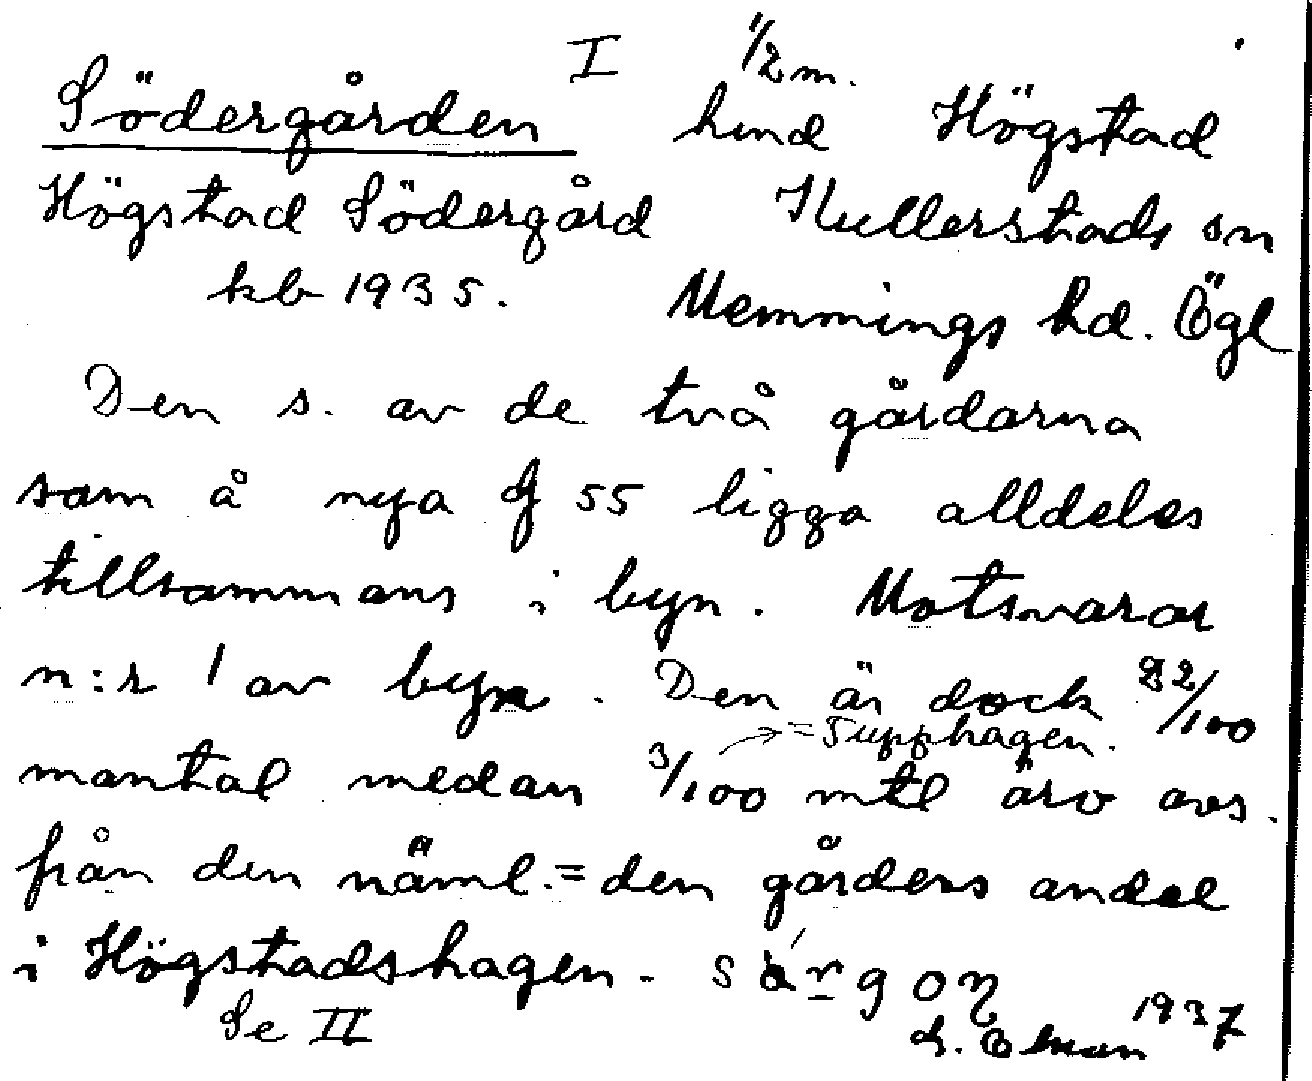 Södergården I 1/2 m.
hmd Högstad
Högstad Södergård Kullerstads sn
kb 1935. Memmings hd. Ögl
Den s. av de två gårdarna
som å nya 55 ligga alldeles
tillsammans i byn. Motsvarar
n:r 1 av byn. Den är dock 22/100
= Supphagen.
mantal medan 3/100 mtl äro avs.
från den näml. = den gårdens andel
i Högstadshagen.
Se II 1937